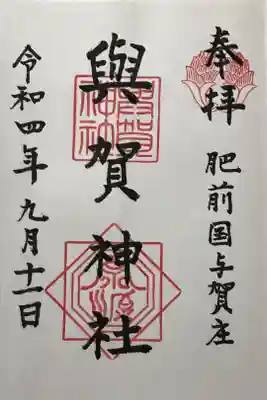 奉拝
肥前国与賀庄
與賀神社
令和四年九月十一日